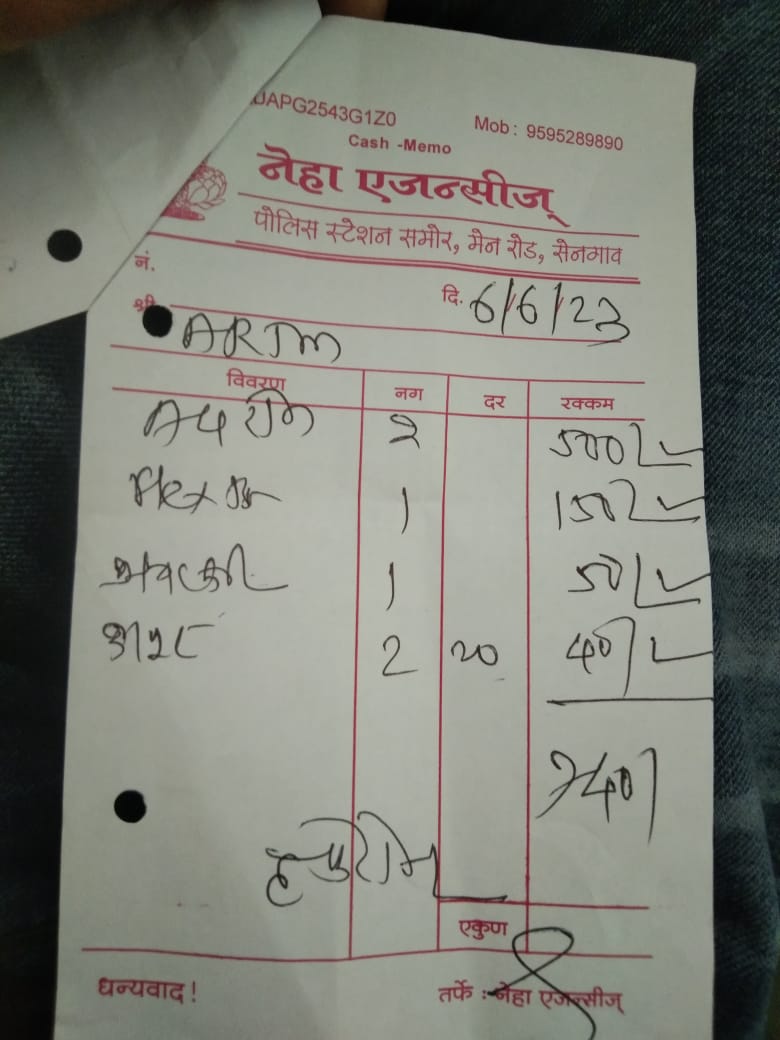 JAPG2543G1Z0 Mob : 9595289890
Cash -Memo
नेहा एजन्सीज्
पोलिस स्टेशन समोर, मेन रोड, सेनगाव
नं.
दि. 6/6/23
श्री
ARTM
विवरण नग दर रक्कम
2 500/-
1 150/-
1 50/-
2 20 40/-
740/
एकुण
धन्यवाद ! तर्फे : नेहा एजन्सीज्